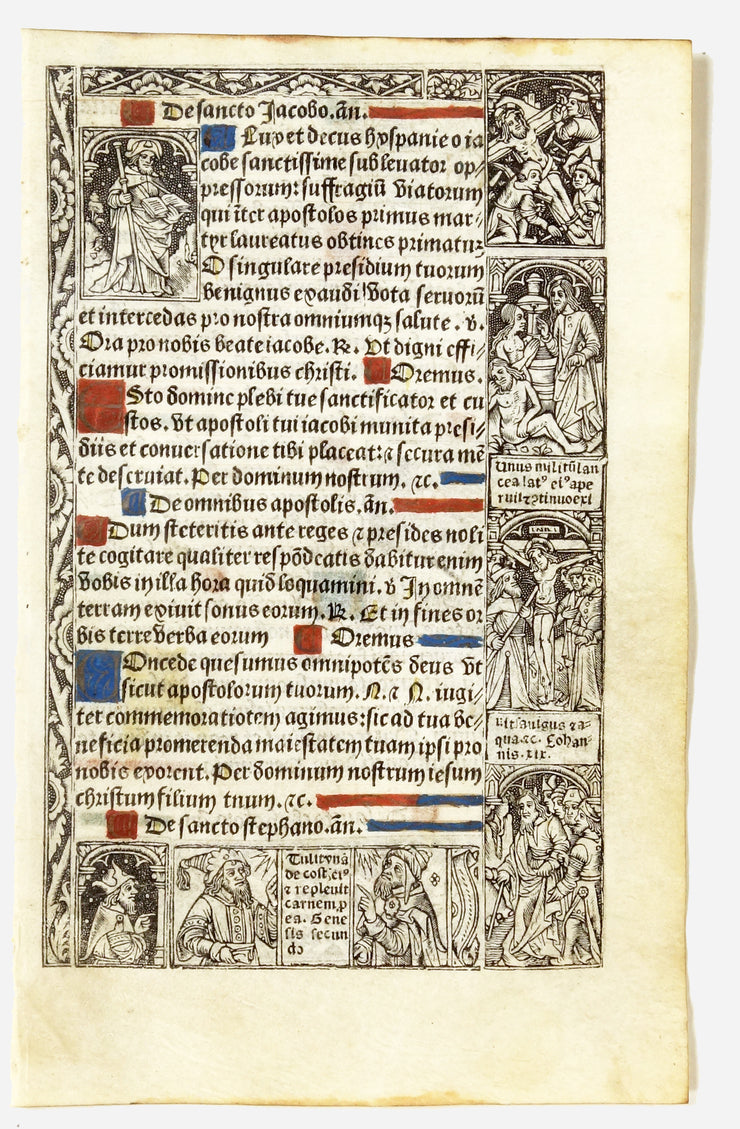 De sancto Jacobo. añ.
Lux et decus hyspanie o ia
cobe sanctissime subleuator op/
pressorum: suffragiū viatorum
qui īter apostolos primus mar/
tyr laureatus obtines primatum
O singulare presidium tuorum
benignus exaudi vota seruorū
et intercedas pro nostra omniumqȝ salute. v.
Ora pro nobis beate iacobe. ℟. Vt digni effi/
ciamur promissionibus christi. Oremus.
ESto domine plebi tue sanctificator et cu
stos. vt apostoli tui iacobi munita presi/
diis et conuersatione tibi placeat: ⁊ secura mē
te deseruiat. Per dominum nostrum. ⁊c.
De omnibus apostolis. añ.
Dum steteritis ante reges ⁊ presides noli
te cogitare qualiter respōdeatis dabitur enim
vobis in illa hora quid loquamini. v In omnē
terram exiuit sonus eorum. ℟. Et in fines or
bis terre verba eorum Oremus
COncede quesumus omnipotēs deus vt
sicut apostolorum tuorum. N. ⁊ N. iugi/
ter commemorationem agimus: sic ad tua be/
neficia promerenda maiestatem tuam ipsi pro
nobis exorent. Per dominum nostrum iesum
christum filium tuum. ⁊c.
De sancto stephano. añ.
Unus militū lan
cea latꝰ eiꝰ ape
ruit ⁊ ↄtinuo exi
INRI
uit sāguis ⁊ a-
qua. ⁊c. Johan-
nis. xix.
Tulit vnā
de cost. eiꝰ
⁊ repleuit
carnem. p
ea. Gene
sis secun
do